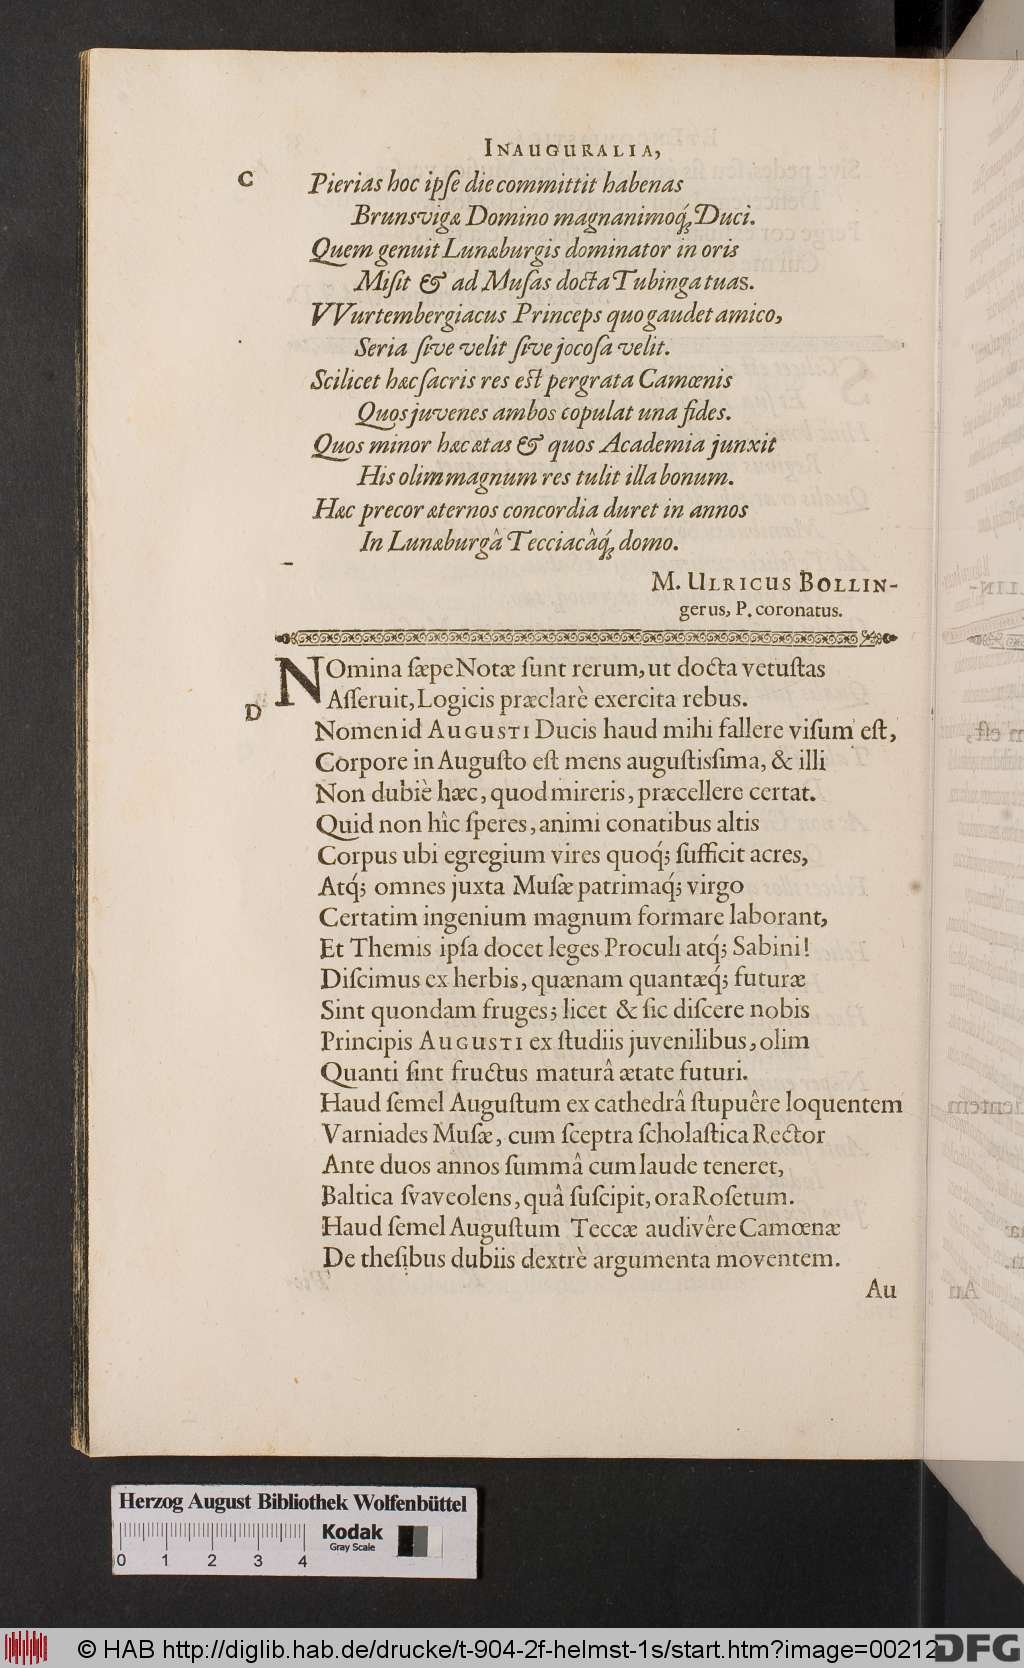 INAUGURALIA,
C
Pierias hoc ipſe die committit habenas
Brunsvigæ Domino magnanimoq́; Duci.
Quem genuit Lunæburgis dominator in oris
Miſit & ad Muſas docta Tubinga tuas.
VVurtembergiacus Princeps quo gaudet amico,
Seria ſive velit ſive jocoſa velit.
Scilicet hæc ſacris res eſt pergrata Camœnis
Quos juvenes ambos copulat una fides.
Quos minor hæc ætas & quos Academia junxit
His olim magnum res tulit illa bonum.
Hæc precor æternos concordia duret in annos
In Lunæburgâ Tecciacâq́; domo.
M. ULRICUS BOLLIN-
gerus, P. coronatus.
NOmina ſæpe Notæ ſunt rerum, ut docta vetuſtas
Aſſeruit, Logicis præclarè exercita rebus.
D
Nomen id AUGUSTI Ducis haud mihi fallere viſum eſt,
Corpore in Auguſto eſt mens auguſtisſima, & illi
Non dubiè hæc, quod mireris, præcellere certat.
Quid non hîc ſperes, animi conatibus altis
Corpus ubi egregium vires quoq́; ſufficit acres,
Atq́; omnes juxta Muſæ patrimaq́; virgo
Certatim ingenium magnum formare laborant,
Et Themis ipſa docet leges Proculi atq́; Sabini!
Diſcimus ex herbis, quænam quantæq́; futuræ
Sint quondam fruges; licet & ſic diſcere nobis
Principis AUGUSTI ex ſtudiis juvenilibus, olim
Quanti ſint fructus maturâ ætate futuri.
Haud ſemel Auguſtum ex cathedrâ ſtupuêre loquentem
Varniades Muſæ, cum ſceptra ſcholaſtica Rector
Ante duos annos ſummâ cum laude teneret,
Baltica ſvaveolens, quâ ſuſcipit, ora Roſetum.
Haud ſemel Auguſtum Teccæ audivêre Camœnæ
De theſibus dubiis dextrè argumenta moventem.
Au
Herzog August Bibliothek Wolfenbüttel
Kodak
Gray Scale
0 1 2 3 4
© HAB http://diglib.hab.de/drucke/t-904-2f-helmst-1s/start.htm?image=00212
DFG